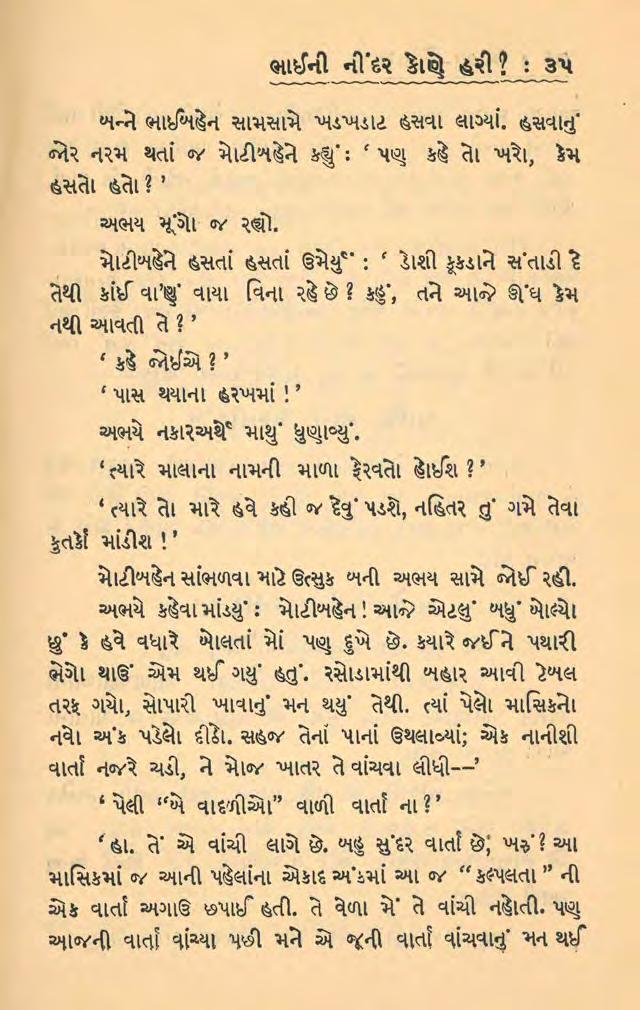 ભાઈની નીંદર કોણે હરી? : ૩૫
બન્ને ભાઈબહેન સામસામે ખડખડાટ હસવા લાગ્યાં. હસવાનું
જોર નરમ થતાં જ મોટીબહેને કહ્યું : ‘ પણ કહે તો ખરો, કેમ
હસતો હતો ? ’
અભય મૂંગો જ રહ્યો.
મોટીબહેને હસતાં હસતાં ઉમેર્યું : ‘ ડોશી કૂકડાને સંતાડી દે
તેથી કાંઈ વા'ણું વાયા વિના રહે છે ? કહું, તને આજે ઊંઘ કેમ
નથી આવતી તે ? ’
‘ કહે જોઈએ ? ’
‘ પાસ થયાના હરખમાં ! ’
અભયે નકારઅર્થે માથું ધુણાવ્યું.
‘ ત્યારે માલાના નામની માળા ફેરવતો હોઈશ ? ’
‘ ત્યારે તો મારે હવે કહી જ દેવું પડશે, નહિતર તું ગમે તેવા
કુતર્કો માંડીશ ! ’
મોટીબહેન સાંભળવા માટે ઉત્સુક બની અભય સામે જોઈ રહી.
અભયે કહેવા માંડયું : મોટીબહેન ! આજે એટલું બધું બોલ્યો
છું કે હવે વધારે બોલતાં મોં પણ દુખે છે. કયારે જઈને પથારી
ભેગો થાઉં એમ થઈ ગયું હતું. રસોડામાંથી બહાર આવી ટેબલ
તરફ ગયો, સોપારી ખાવાનું મન થયું તેથી. ત્યાં પેલો માસિકનો
નવો અંક પડેલો દીઠો. સહજ તેનાં પાનાં ઉથલાવ્યાં; એક નાનીશી
વાર્તા નજરે ચડી, ને મોજ ખાતર તે વાંચવા લીધી--’
‘ પેલી “બે વાદળીઓ” વાળી વાર્તા ના ? ’
‘ હા. તેં એ વાંચી લાગે છે. બહુ સુંદર વાર્તા છે, ખરૂં ? આ
માસિકમાં જ આની પહેલાંના એકાદ અંકમાં આ જ “ કલ્પલતા ” ની
એક વાર્તા અગાઉ છપાઈ હતી. તે વેળા મેં તે વાંચી નહોતી. પણ
આજની વાર્તા વાંચ્યા પછી મને એ જૂની વાર્તા વાંચવાનું મન થઈ